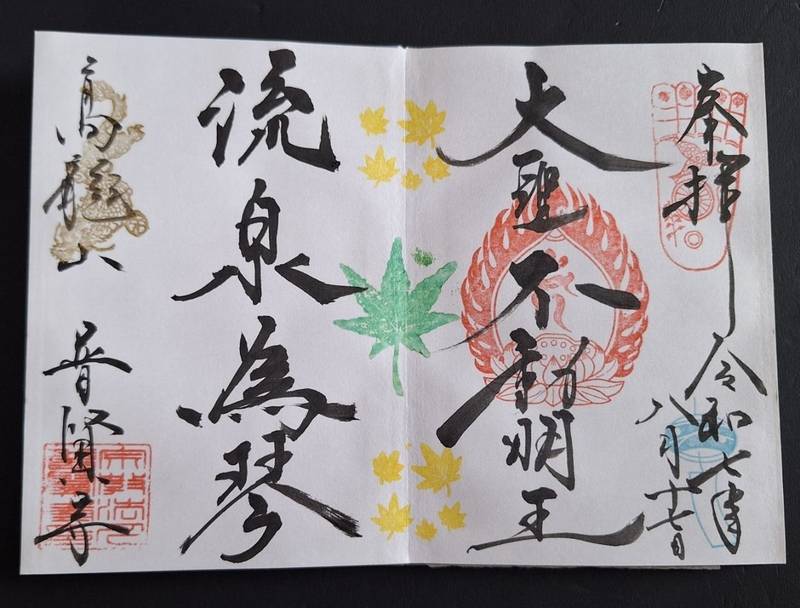 奉拝
令和七年
八月十七日
大聖不動明王
流泉為琴
高龍山
普賢寺